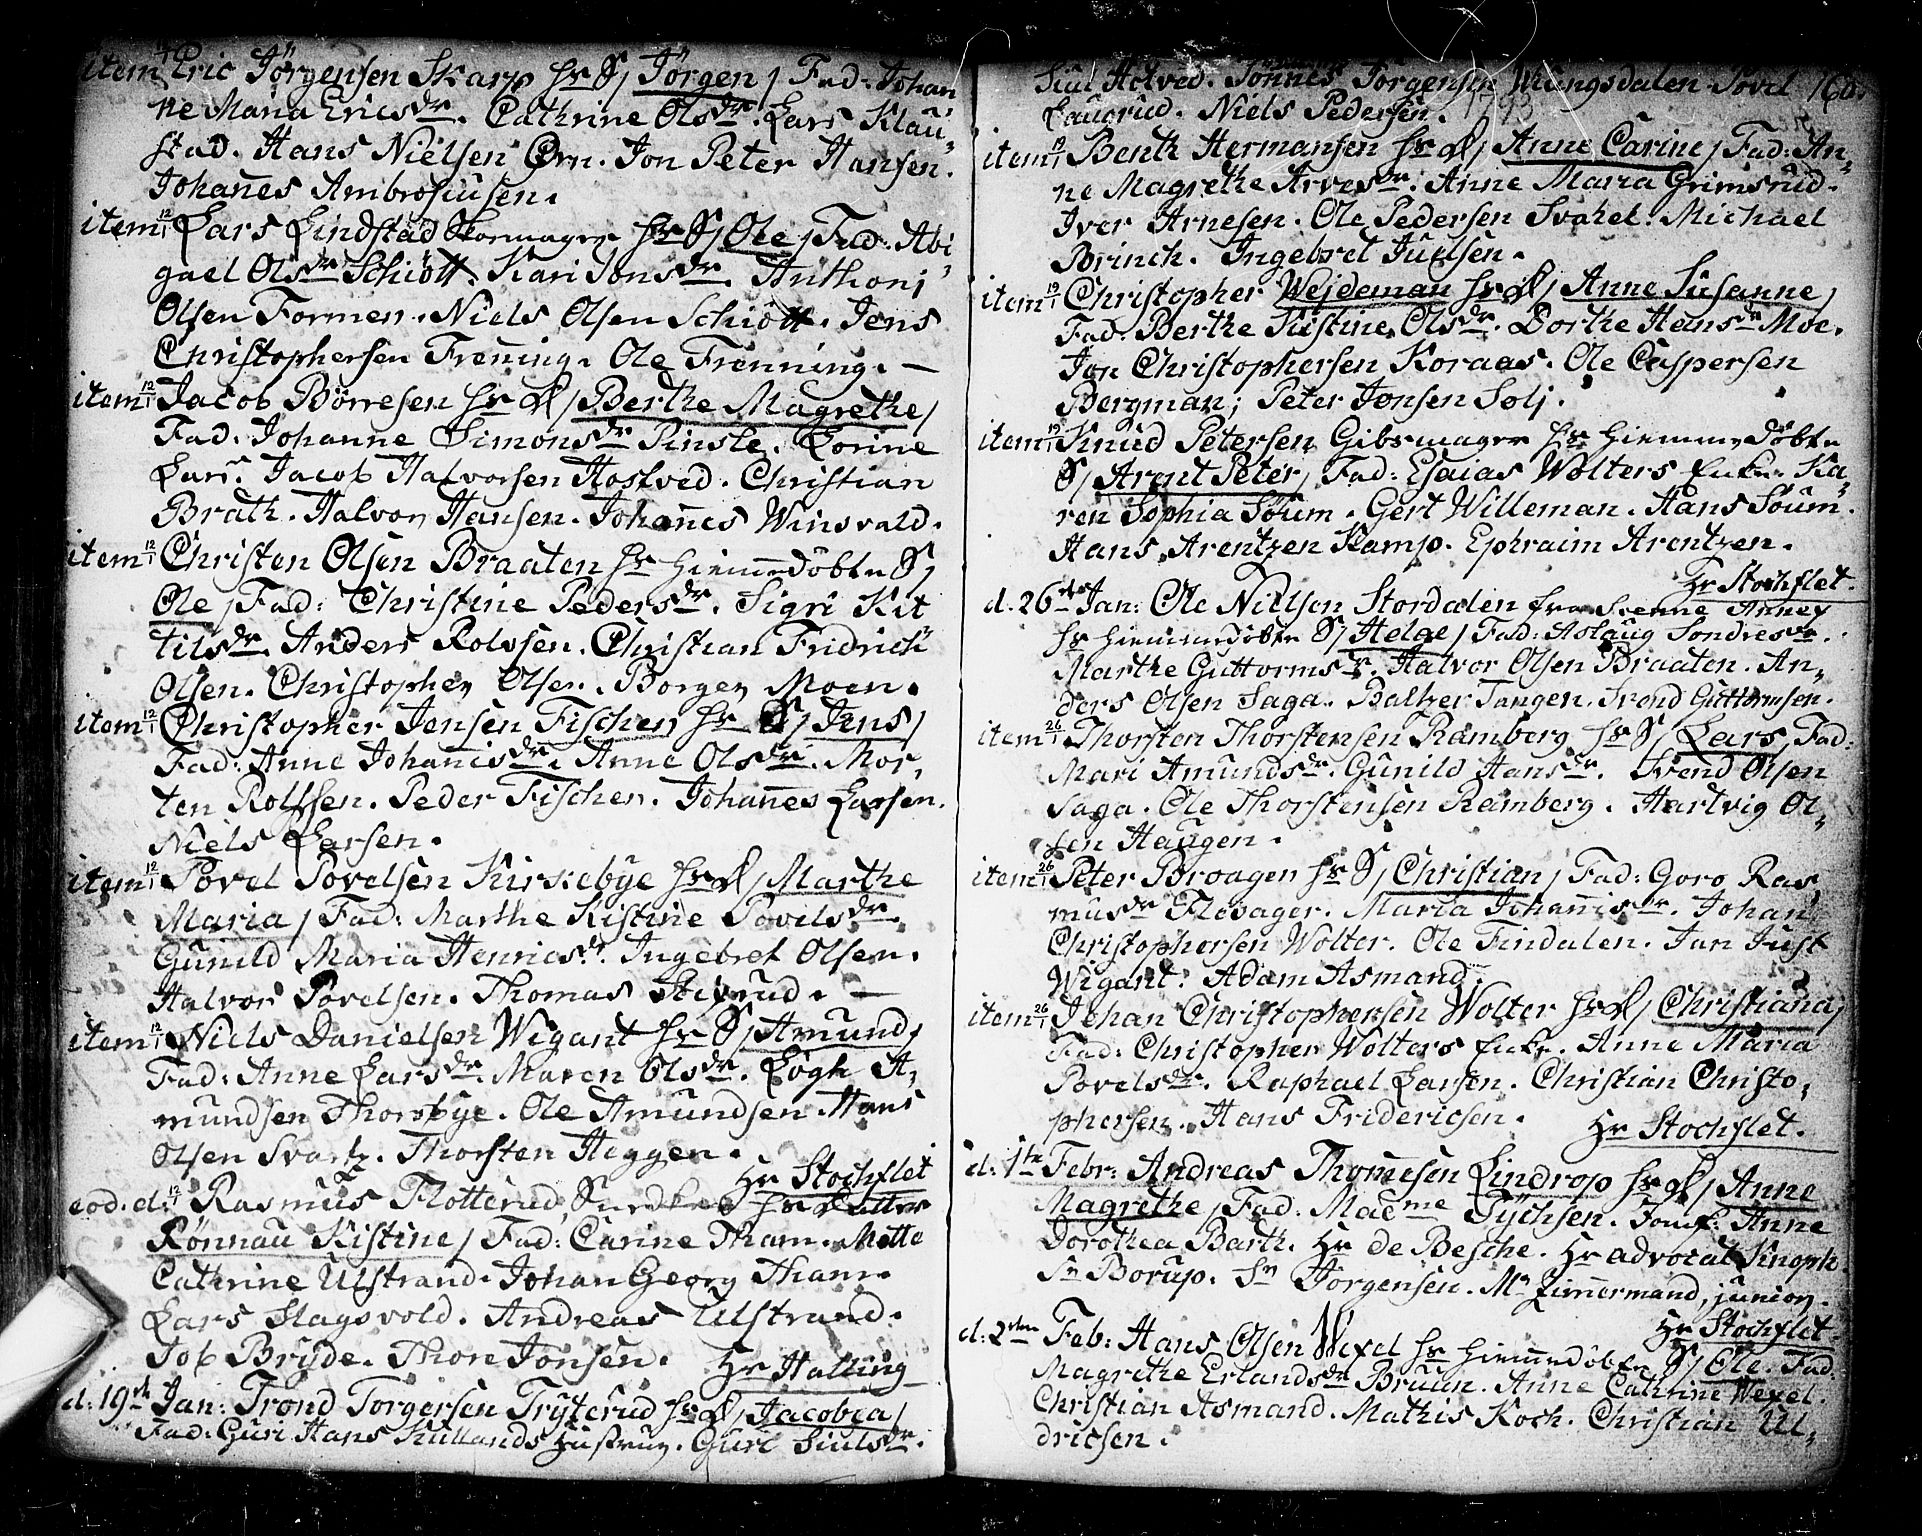 item 12/1 Eric Jörgensen Skarp hr S/ Jörgen / Fad: Johan
ne Maria Ericsdr. Cathrine Olsdr. Lars Klau
stad. Hans Nielsen Örn. Jon Peter Hansen.
Johañes Ambrosiusen.
item 12/1 Lars Lindstad Skomager hr S/ Ole / Fad: Abi
gael Olsdr Schiött. Kari Jonsdr. Anthonj
Olsen Formen. Niels Olsen Schiött. Jens
Christophersen Freñing. Ole Frenning. —
item 12/1 Jacob Börresen hr D/ Berthe Magrethe /
Fad: Johanne Simonsdr Pinsle. Lorine
Lars. Jacob Halvorsen Hostved. Christian
Brath. Halvor Hansen. Johañes Winsvald.
item 12/1 Christen Olsen Braaten hr hiemmedöbte S/
Ole / Fad: Christine Pedersdr. Sigri Kit
tilsdr. Anders Rolvsen. Christian Fridrich
Olsen. Christopher Olsen. Borger Moen.
item 12/1 Christopher Jensen Fischer hr S/ Jens /
Fad: Anne Johanisdr. Anne Olsdr. Mor,
ten Rolfsen. Peder Fischer. Johañes Larsen.
Niels Larsen.
item 12/1 Povel Povelsen Kirkebye hr D/ Marthe
Maria / Fad: Marthe Kistine Povelsdr.
Gunild Maria Henrics. Ingebret Olsen.
Halvor Povelsen. Thomas. —
item 12/1 Niels Danielsen Wigant hr S/ Amund /
Fad: Anne Larsdr. Maren Olsdr. Lögh A,
mundsen Thorsbye. Ole Amundsen. Hans
Olsen Svartz. Thorsten Heggen.
Hr Stochflet
eod. d: 12/1 Rasmus Flotterud hr Datter
Rönnau Kistine / Fad: Carine Tham. Mette
Cathrine Ulstrand. Johan Georg Tham.
Lars Skagsvold. Andreas Ulstrand.
Job Bryde. Thor Jonsen. Hr Halling
d. 19de Jan: Trond Torgersen Tryterud hr D/ Jacobea /
Fad: Guri Hans Hustrue. Guri Siulsdr.
Siul Hotved. Tönnes Jörgensen Kongsdalen. Povel 160.
Laugrud. Niels Pedersen. 1793
item 19/1 Benth Hermansen hr D/ Anne Carine / Fad: An,
ne Magrethe Arvesdr. Anne Maria Grimsrud.
Iver Arnesen. Ole Pedersen Svahel. Michael
Brinch. Ingebret Juelsen.
item 19/1 Christopher Wejdeman hr D/ Anne Susanne /
Fad: Berthe Kistine Olsdr. Dorthe Hansdr Moe.
Jan Christophersen Koraas. Ole Caspersen
Bergman; Peter Jonsen Solj.
item 19/1 Knud Petersen Gibsmager hr hiemmedöbte
S/ Arent Peter / Fad: Esaias Wolters Enke. Ka,
ren Sophia Söum. Gert Willeman. Hans Söum.
Hans Arentzen Kamp. Ephraim Arentzen.
Hr Stochflet.
d. 26de Jan: Ole Nielsen Stordalen fra Svenne Annex
hr hiemmedöbte S/ Helge / Fad: Aslaug Sondresdr.
Marthe Guttormsdr. Halvor Olsen Braaten. An,
ders Olsen Saga. Baltzer Tangen. Svend Guttormsen.
item 26/1 Thorsten Thorstensen Ramberg hr S/ Lars, Fad:
Mari Amundsdr. Gunild Hansdr. Svend Olsen
Saga. Ole Thorstensen Ramberg. Hartvig Ol,
sen Haugen.
item 26/1 Peter Braagen hr S/ Christian / Fad: Goro Ras
musdr Flesager. Maria Johañisdr. Johan
Christophersen Wolter. Ole Findalen. Jan Just
Wigant. Adam Asmand.
item 26/1 Johan Christophersen Wolter hr D/ Christiana /
Fad: Christopher Wolters Enke. Anne Maria
Povelsdr. Raphael Larsen. Christian Christo,
phersen. Hans Fridericsen.
Hr Stochflet.
d. 1te Febr: Andreas Thomesen Lindrop hr D/ Anne
Magrethe / Fad: Madme Tÿchsen. Jomf: Anne
Dorothea Barth. Hr de Besche. Hr advocat Knoph
Sr Borup. Sr Jörgensen. Mr Zimmermand, junior.
Hr Stochflet.
d. 2den Feb: Hans Olsen Wexel hr hiemmedöbte S/ Ole. Fad:
Magrethe Erlandsdr Bruun. Anne Cathrine Wexel.
Christian Asmand. Mathis Koch. Christian Ul,
dricsen.